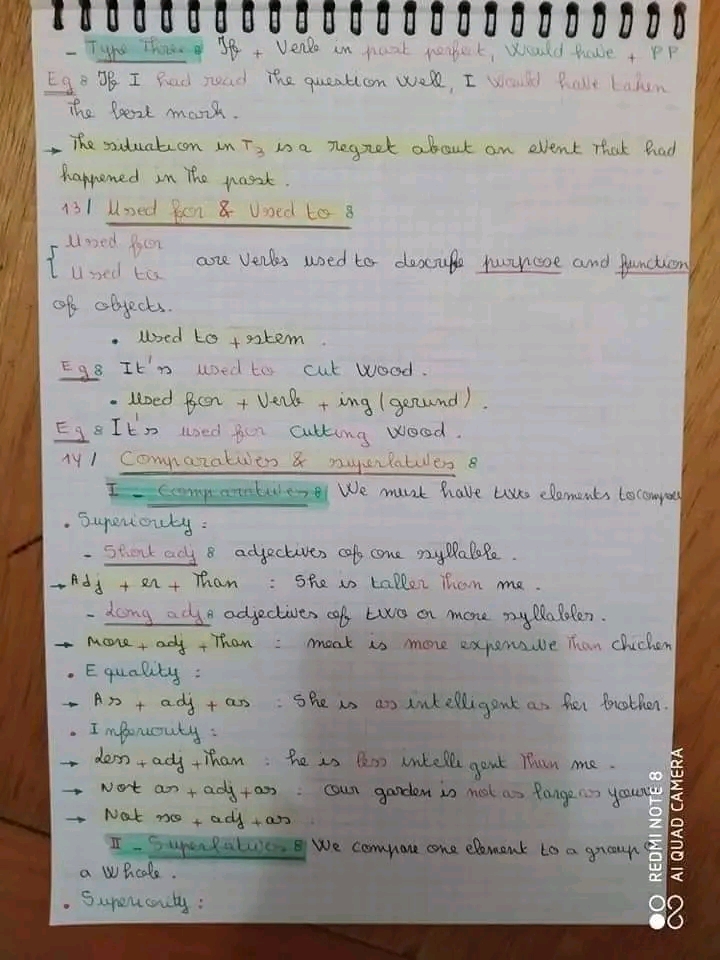 - Type Three : If + Verb in past perfect, would have + PP
Eg : If I had read The question well, I would have taken
The best mark.
→ The situation in T3 is a regret about an event That had
happened in The past.
13/ Used for & Used to :
Used for
Used to are Verbs used to describe purpose and function
of objects.
• Used to + stem.
Eg : It's used to cut wood.
• Used for + Verb + ing (gerund).
Eg : It's used for cutting wood.
14/ Comparatives & superlatives :
I - Comparatives : We must have two elements to compare
• Superiority :
- Short adj : adjectives of one syllable.
→ Adj + er + Than : She is taller Than me.
- Long adj : adjectives of two or more syllables.
→ More + adj + Than : meat is more expensive Than chicken
• Equality :
→ As + adj + as : She is as intelligent as her brother.
• Inferiority :
→ Less + adj + Than : he is less intelligent Than me.
→ Not as + adj + as : our garden is not as large as yours
→ Not so + adj + as
II - Superlatives : We compare one element to a group
a whole.
• Superiority :
REDMI NOTE 8
AI QUAD CAMERA